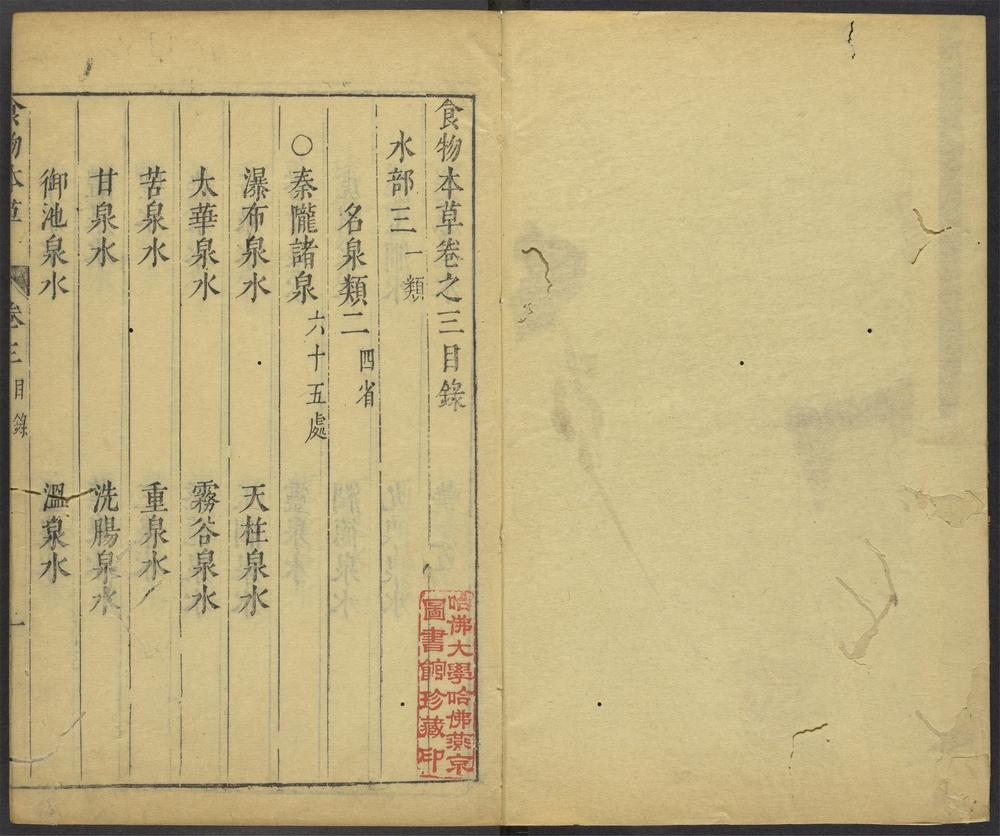 食物本草卷之三目錄
水部三一類
名泉類二四省
○秦隴諸泉六十五處
瀑布泉水 天柱泉水
太華泉水 霧谷泉水
苦泉水 重泉水
甘泉水 洗腸泉水
御池泉水 溫泉水
食物本草 卷三目錄 一
哈佛大學哈佛燕京
圖書館珍藏印